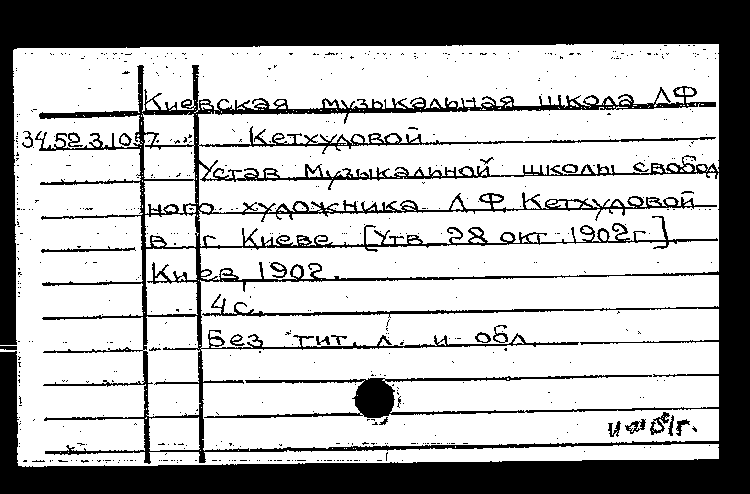 Киевская музыкальная школа Л.Ф
34.52.3.1057 Кетхудовой.
Устав музыкалнной школы свобод
ного художника Л.Ф. Кетхудовой
в г. Киеве. [Утв. 28 окт. 1902г.].
Киев, 1902.
4 с.
Без тит. л. и обл.